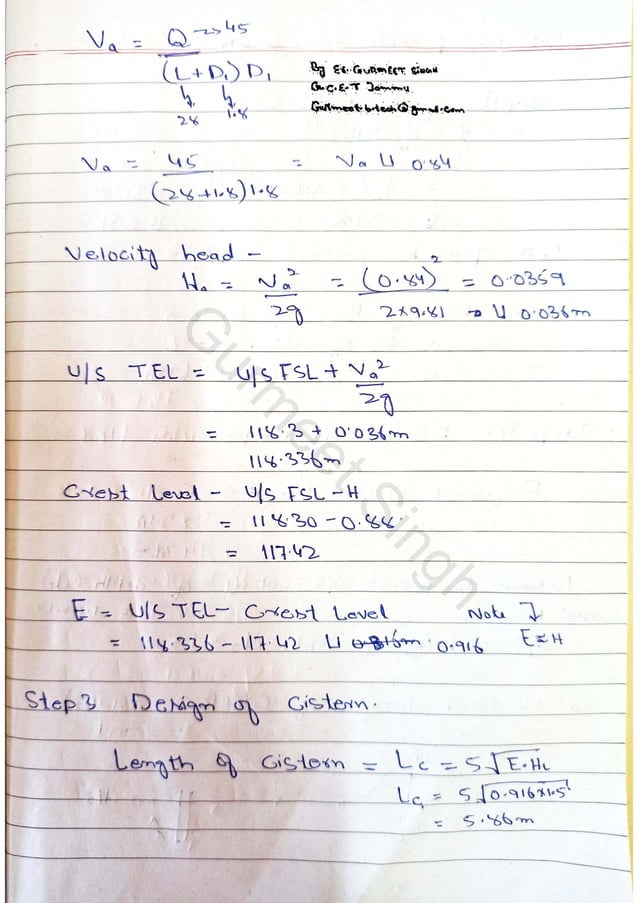 Va = Q → 45
(L+D₁) D₁
28 1.8
By Er. GURMEET SINGH
G.C.E.T Jammu
Gurmeet.b.tech@gmail.com
Va = 45 / (28+1.8)1.8 = Va ⊔ 0.84
Velocity head -
Ha = Va²/2g = (0.84)²/2×9.81 = 0.0359
→ ⊔ 0.036m
U/S TEL = U/S FSL + Va²/2g
= 118.3 + 0.036m
118.336m
Crest Level - U/S FSL - H
= 118.30 - 0.88
= 117.42
E = U/S TEL - Crest Level Note ↓
= 118.336 - 117.42 ⊔ 0.916 E≈H
Step 3 Design of Cistern.
Length of Cistern = Lc = 5√E.HL
Lc = 5√0.916×1.5
= 5.86m
Gurmeet Singh